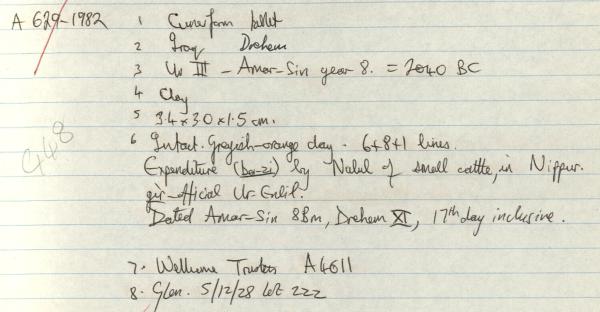 A 629-1982
1 Cuneiform tablet
2 Iraq Drehem
3 Ur III - Amar-Sin year 8. = 2040 BC
4 Clay
5 3.4 x 3.0 x 1.5 cm.
6 Intact. Greyish-orange clay. 6+8+1 lines.
Expenditure (ba-zi) by Nalul of small cattle, in Nippur.
gir-official Ur-Enlil.
Dated Amar-Sin 8 Bm, Drehem XI, 17th day inclusive.
448
7. Wellcome Trustees A4611
8. Glen. 5/12/28 Lot 222